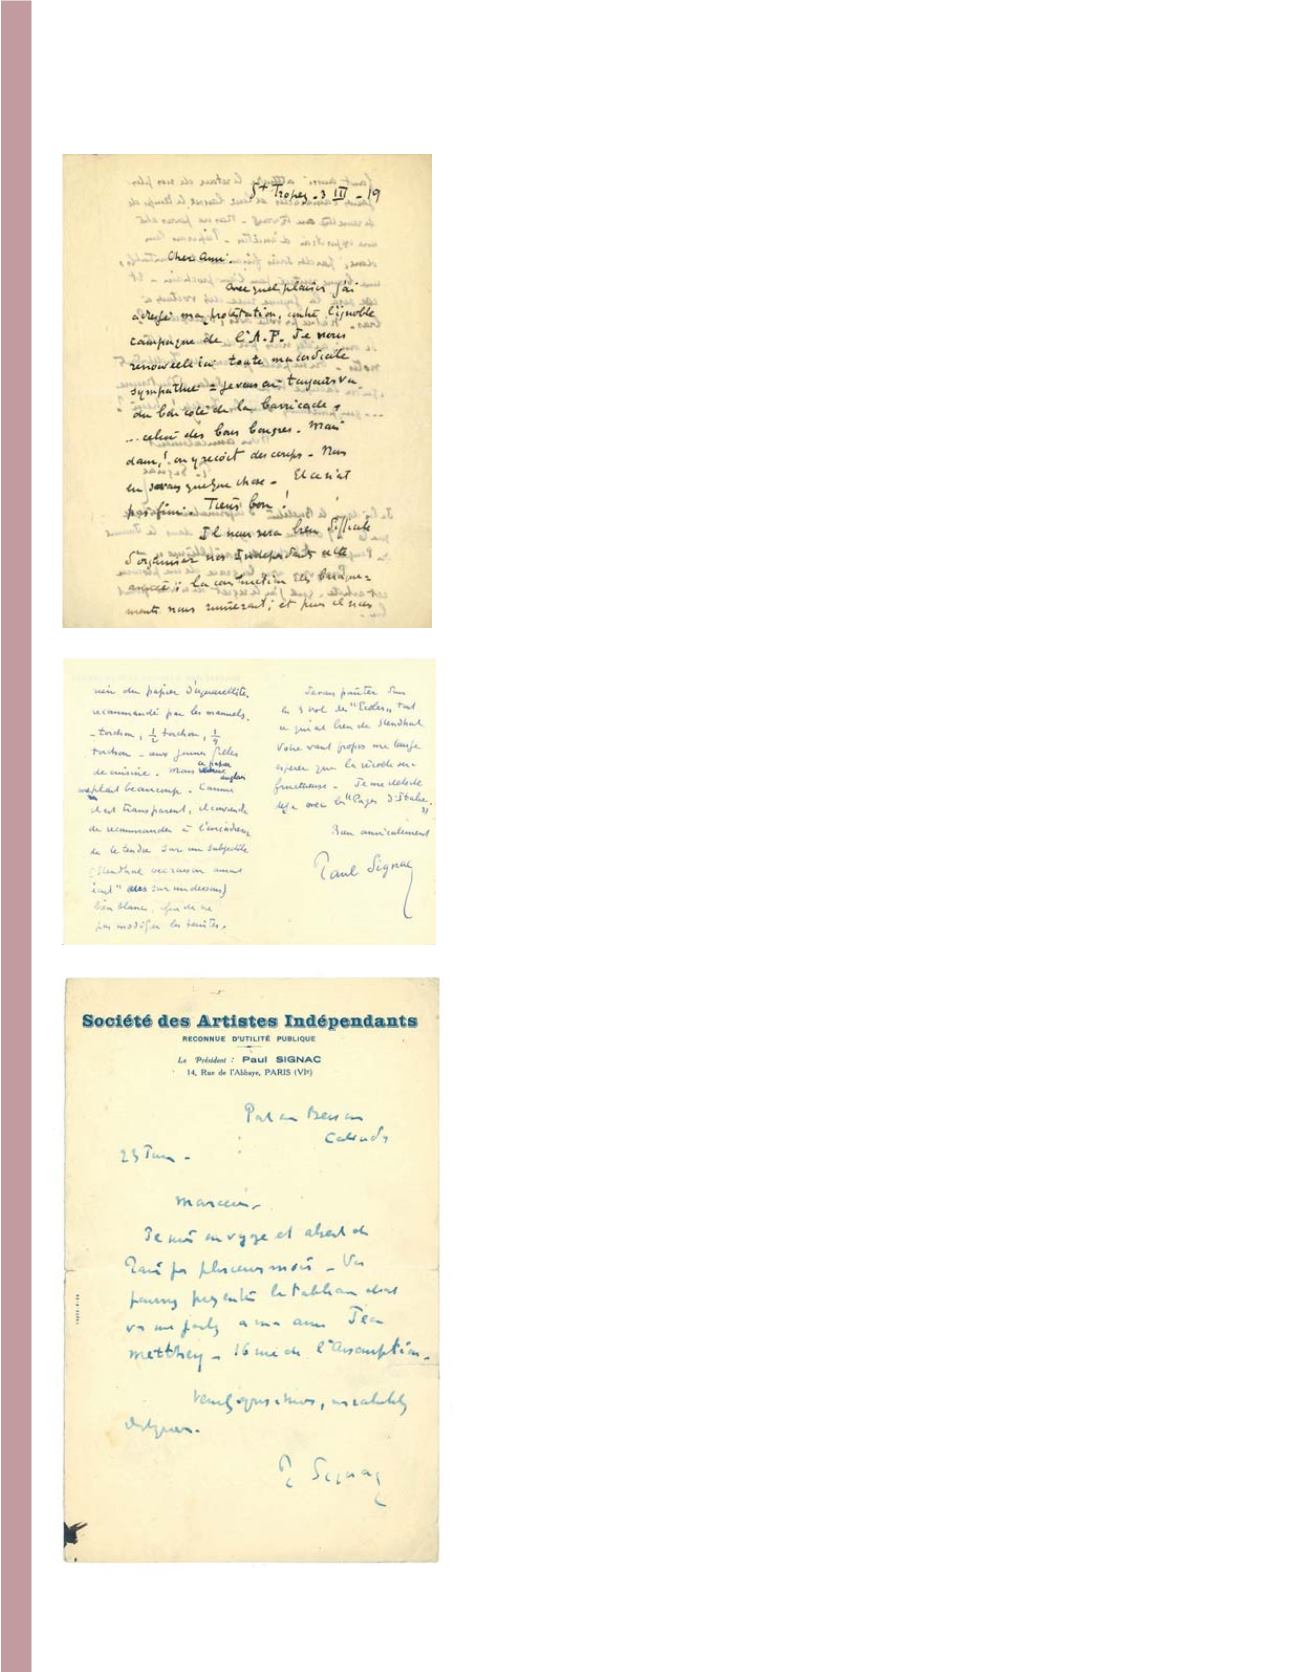 St Tropez - 3 III - 19
Cher Ami.
Avec quel plaisir j'ai
adressé ma protestation, contre l'ignoble
campagne de l'A.F. Je vous
renouvelle ici toute ma cordiale
sympathie = je vous ai toujours vu
du bon côté de la barricade,
... celui des bons bougres. Mais
dam! on y reçoit des coups - Nous
en savons quelque chose - Et ce n'est
pas fini. Tiens bon!
Il nous sera bien difficile
d'organiser nos Indépendants cette
année; la construction des baraque-
ments nous ruinerait; et puis il nous
rein du papier d'aquarelliste
recommandé par les manuels.
- torchon, 1/2 torchon, 1/4
torchon - aux jeunes filles
de cuisine. Mais ce papier
anglais
me plaît beaucoup. Comme
il est transparent, il convient
de recommander à l'encadreur
de le tendre sur un subjectile
(Stendhal
sur un dessous)
bien blanc, afin de ne
pas modifier les teintes.
Je vais pointer dans
les 3 vol. des "Ecoles" tout
ce qui est bien de Stendhal
Votre avant propos me laisse
espérer que la récolte sera
fructueuse. Je me délecte
déjà avec les "Pages d'Italie"
Bien amicalement
Paul Signac
Société des Artistes Indépendants
RECONNUE D'UTILITÉ PUBLIQUE
Le Président : Paul SIGNAC
14, Rue de l'Abbaye, PARIS (VIe)
Port en Bessin
Calvados
23 Juin -
Monsieur -
Je suis en voyage et absent de
Paris pr plusieurs mois - Vs
pourrez présenter le tableau dont
vs me parlez à mon ami
Metthey - 16 rue de l'Assomption -
Veuillez agréer, mes salutations
distinguées.
P. Signac